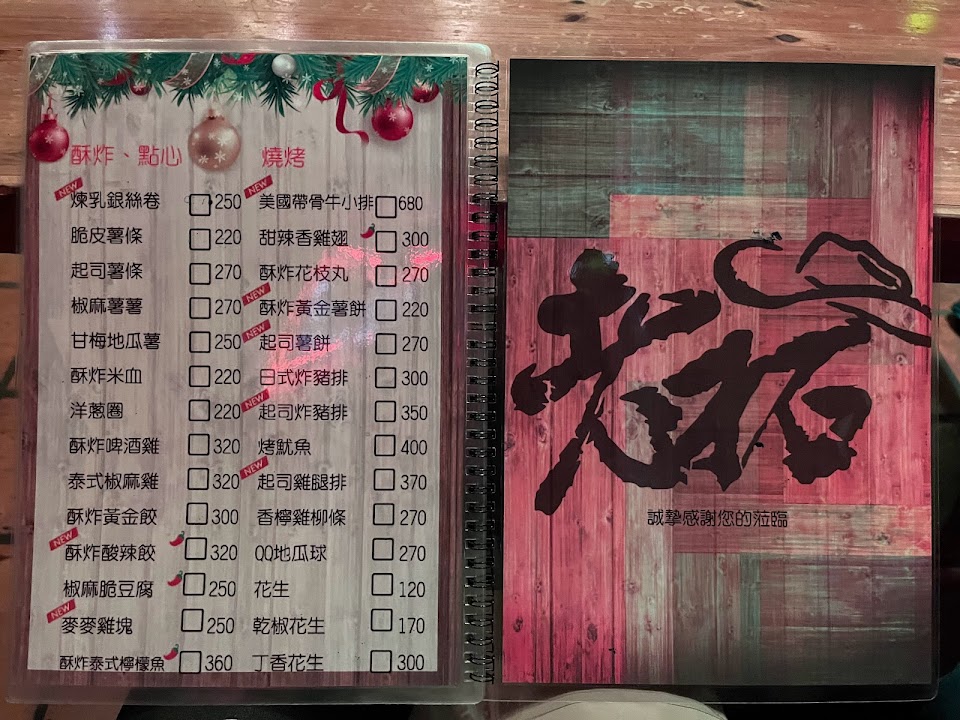 酥炸、點心
NEW 煉乳銀絲卷 250
脆皮薯條 220
起司薯條 270
椒麻薯薯 270
甘梅地瓜薯 250
酥炸米血 220
洋蔥圈 220
酥炸啤酒雞 320
泰式椒麻雞 320
酥炸黃金餃 300
NEW 酥炸酸辣餃 320
椒麻脆豆腐 250
NEW 麥麥雞塊 250
酥炸泰式檸檬魚 360
燒烤
NEW 美國帶骨牛小排 680
甜辣香雞翅 300
酥炸花枝丸 270
NEW 酥炸黃金薯餅 220
NEW 起司薯餅 270
日式炸豬排 300
NEW 起司炸豬排 350
烤魷魚 400
NEW 起司雞腿排 370
香檸雞柳條 270
QQ地瓜球 270
花生 120
乾椒花生 170
丁香花生 300
誠摯感謝您的蒞臨